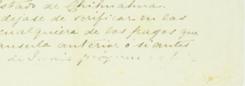 stado de Chihuahua.
dejase de verificar en las
cualquiera de los pagos que
ausula anterior o si antes
de Junio próximo